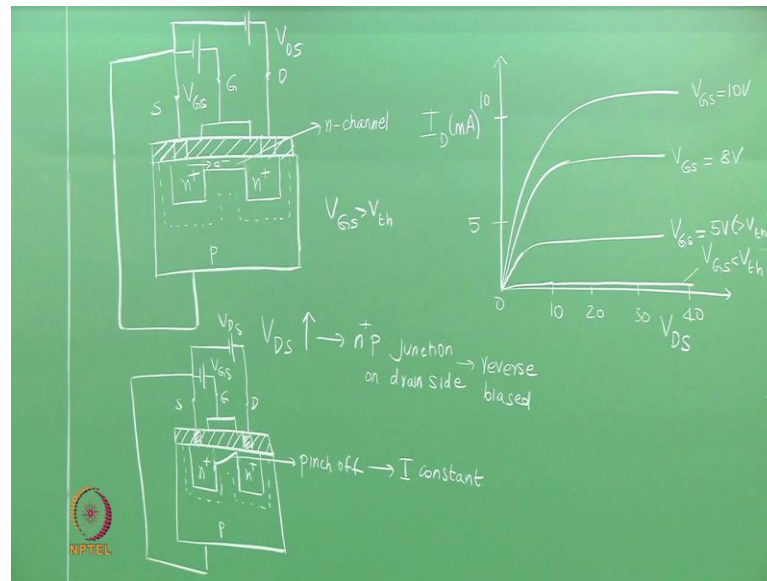 V_DS
S
V_GS
G
D
n-channel
e⁻
n⁺
n⁺
P
V_GS > V_th
I_D (mA)
10
5
0
10
20
30
40
V_DS
V_GS = 10V
V_GS = 8V
V_GS = 5V (> V_th
V_GS < V_th
V_DS ↑ → n⁺p junction → reverse
on drain side biased
V_DS
V_GS
S
G
D
n⁺
n⁺
P
pinch off → I constant
NPTEL